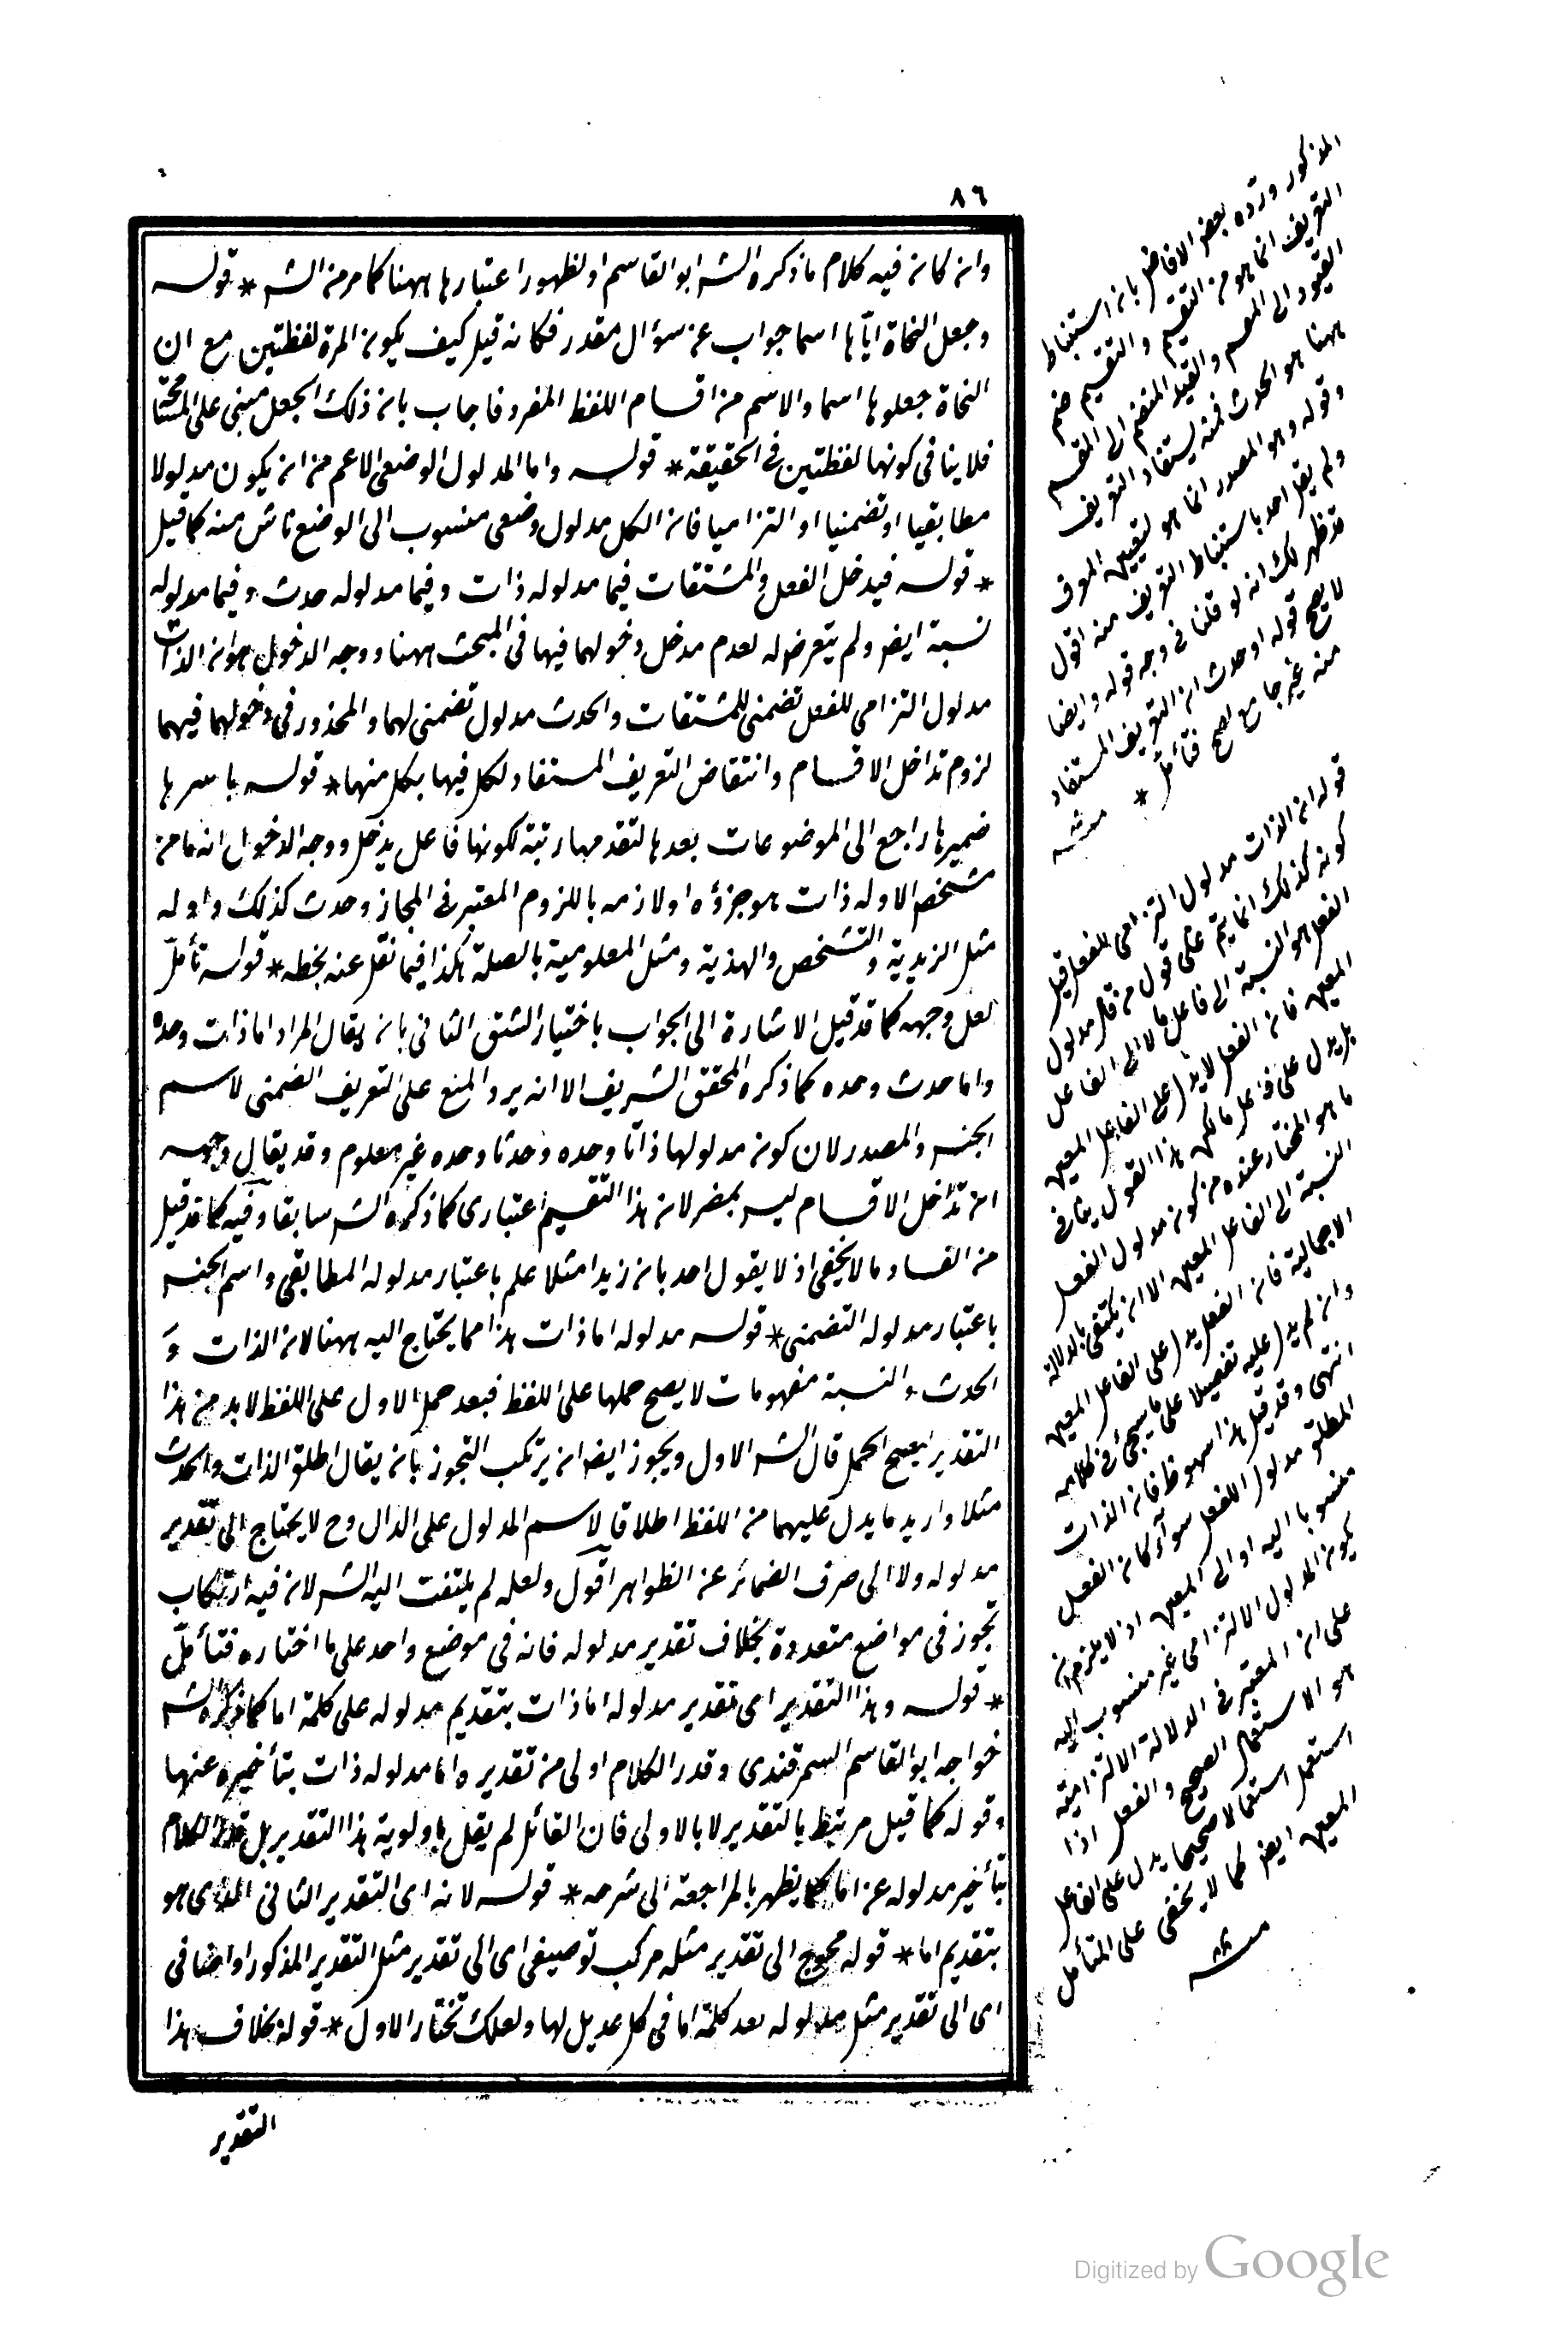 ٨٦
وان كان فيه كلام ما ذكره الشه ابو القاسم او لظهور اعتبارها ههنا كما مر من الشه * قوله
وجعل النحاة اياها اسما جواب عن سؤال مقدر فكانه قيل كيف يكون المرة لفظتين مع ان
النحاة جعلوها اسما والاسم من اقسام اللفظ المفرد فاجاب بان ذلك الجعل مبنى على المسامحة
فلا ينافى كونها لفظتين فى الحقيقة * قوله واما المدلول الوضعى الاعم من ان يكون مدلولا
مطابقيا او تضمنيا او التزاميا فان الكل مدلول وضعى منسوب الى الوضع ناش منه كما قيل
* قوله فيدخل الفعل والمشتقات فيما مدلوله ذات وفيما مدلوله حدث وفيما مدلوله
نسبة ايضا ولم يتعرض له لعدم مدخل دخولهما فيها فى المبحث ههنا ووجه الدخول هو ان الذات
مدلول التزامى للفعل تضمنى للمشتقات والحدث مدلول تضمنى لهما والمحذور فى دخولهما فيهما
لزوم تداخل الاقسام وانتقاض التعريف المستفاد لكل فيها بكل منها * قوله باسرها
ضميرها راجع الى الموضوعات بعدها لتقدمها رتبة لكونها فاعل يدخل ووجه الدخول انه ما من
مشخص الا وله ذات هو جزؤه او لازمه باللزوم المعتبر فى المجاز وحدث كذلك وله
مثل الزيدية والتشخص والهذية ومثل المعلومية بالصلة هكذا فيما نقل عنه بخطه * قوله تأمل
لعل وجهه كما قد قيل الاشارة الى الجواب باختيار الشق الثانى بان يقال المراد اما ذات وحده
واما حدث وحده كما ذكره المحقق الشريف الا انه يرد المنع على التعريف الضمنى لاسم
الجنس والمصدر لان كون مدلولها ذاتا وحده وحدثا وحده غير معلوم وقد يقال وجهه
ان تداخل الاقسام ليس بمضر لان هذا التقسيم اعتبارى كما ذكره الشه سابقا وفيه كما قد قيل
من الفساد ما لا يخفى اذ لا يقول احد بان زيدا مثلا علم باعتبار مدلوله المطابقى واسم الجنس
باعتبار مدلوله التضمنى * قوله مدلوله اما ذات هذا مما يحتاج اليه ههنا لان الذات و
الحدث والنسبة مفهومات لا يصح حملها على اللفظ فبعد حمل الاول على اللفظ لا بد من هذا
التقدير ليصح الحمل قال الشه الاول ويجوز ايضا ان يرتكب التجوز بان يقال اطلق الذات والحدث
مثلا واريد ما يدل عليهما من اللفظ اطلاقا لاسم المدلول على الدال وح لا يحتاج الى تقدير
مدلوله ولا الى صرف الضمائر عن الظواهر اقول ولعله لم يلتفت اليه الشه لان فيه ارتكاب
تجوز فى مواضع متعددة بخلاف تقدير مدلوله فانه فى موضع واحد على ما اختاره فتأمل
* قوله وهذا التقدير اى تقدير مدلوله اما ذات بتقديم مدلوله على كلمة اما كما ذكره الشه
خواجه ابو القاسم السمرقندى وقدر الكلام اولى من تقديره واما مدلوله ذات بتأخيره عنها
وقوله كما قيل مرتبط بالتقدير لا بالاولى فان القائل لم يقل باولوية هذا التقدير بل قدر الكلام
بتأخير مدلوله عن اما كما يظهر بالمراجعة الى شرحه * قوله لانه اى التقدير الثانى الذى هو
بتقديم اما * قوله محوج الى تقدير مثله مركب توصيفى اى الى تقدير مثل التقدير المذكور او اضافى
اى الى تقدير مثل مدلوله بعد كلمة اما فى كل عديل لها ولعلك تختار الاول * قوله بخلاف هذا
التقدير
المذكور ورده بعض الافاضل بان استنباط
التعريف انما هو من التقسيم والتقسيم ضم
القيود الى المقسم والقيد المنضم الى المقسم
ههنا هو الحدث فمنه يستفاد التعريف
وقوله وهو المصدر انما هو لتعيين المعرف
ولم يقل احد باستنباط التعريف منه اقول
قد ظهر لك انه لو قلنا فى وجه قوله وايضا
لا يصح قوله او حدث ان التعريف المستفاد
منه غير جامع لصح فتأمل *
منه
قوله ان الذات مدلول التزامى للفعل قيل
كونه كذلك انما يتم على قول من قال مدلول
الفعل هو النسبة الى فاعل ما لا الى الفاعل
المعين فان الفعل لا يدل على الفاعل المعين
بل يدل على فاعل ما لكن هذا القول ينافى
ما هو المختار عنده من كون مدلول الفعل
النسبة الى الفاعل المعين الا ان يكتفى بالدلالة
الاجمالية فان الفعل يدل على الفاعل المعين
وان لم يدل عليه تفصيلا على ما سيجئ فى كلامه
انتهى وقد قيل هذا سهو ظ فان الذات
المطلق مدلول للفعل سواء كان الفعل
منسوبا اليه او الى المعين اذ لا يلزم ان
يكون المدلول الالتزامى غير منسوب اليه
على ان المعتبر فى الدلالة الالتزامية
هو الاستعمال الصحيح والفعل اذا
استعمل استعمالا صحيحا يدل على الفاعل
المعين ايضا كما لا يخفى على المتأمل
منه
Digitized by Google